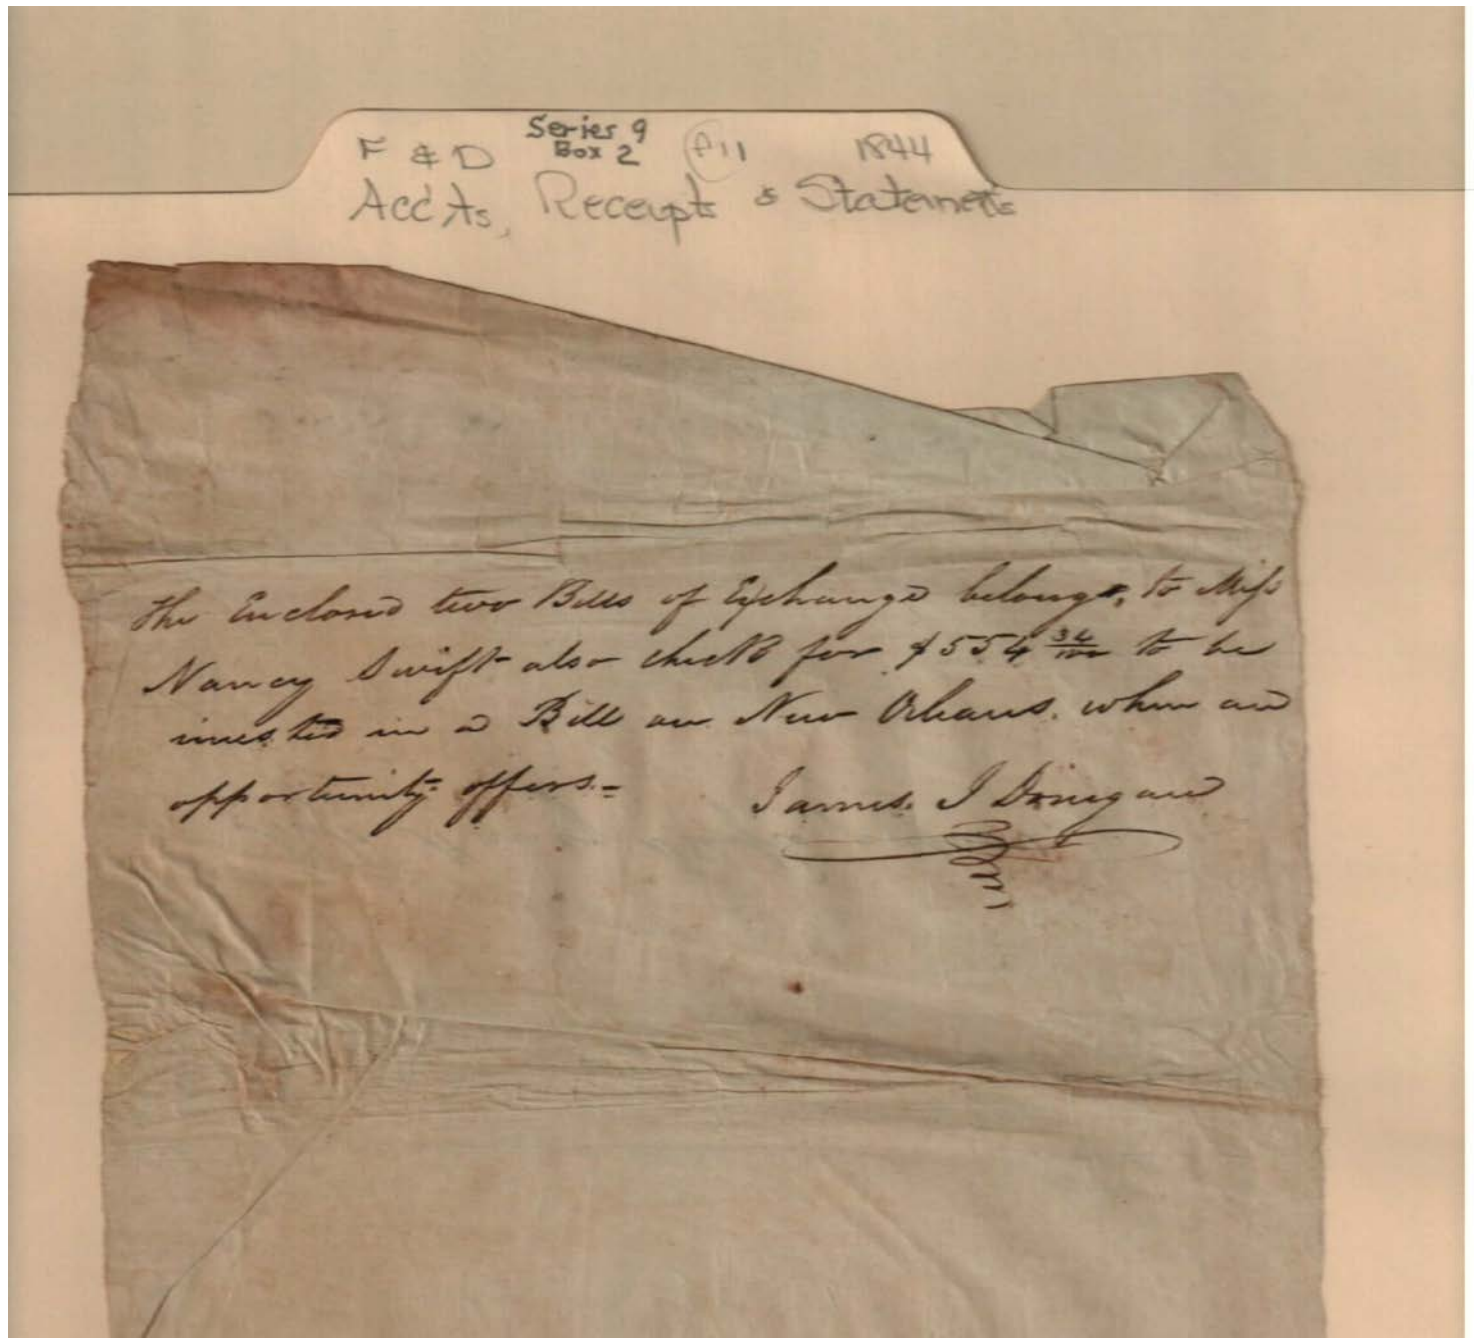 Series 9
F & D Box 2 A11 1844
Acc'ts, Receipts & Statements
The Enclosed two Bills of Exchange belongs, to Miss
Nancy Swift also check for $554 34/100 to be
invested in a Bill on New Orleans. when an
opportunity offers.=
James J Donegan